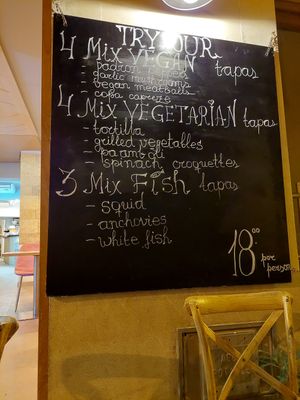 TRY OUR
4 Mix VEGAN tapas
- padron peppers
- garlic mushrooms
- vegan meatballs
- coca caprese
4 Mix VEGETARIAN tapas
- tortilla
- grilled vegetables
- pa amb oli
- spinach croquettes
3 Mix Fish tapas
- squid
- anchovies
- white fish
18.00 por person